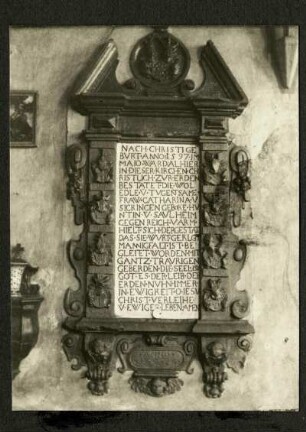 NACH CHRISTI GE
BVRT ANNO 1597 IM
MAIO WARD ALHIER
IN DIESER KIRCHEN CH
RISTLICH ZVR ERDEN
BESTATET DIE WOL
EDLE V TVGENTSAME
FRAW CATHARINA V
SICKINGEN GEBORNE HV
NTIN V SAVLHEIM
GEGEN REICH V ARM
HIELT SICH DER
DAS SIE
MANIGFALTIST BE
GLEITET WORDEN MIT
GANTZ TRAVRIGEN
GEBERDEN DIE SEEL
GOT ES DER LEIB DER
ERDEN NVHN IMER
IN EWIGKEIT DIESN
CHRIST VERLEIHE
V EWIGES LEBEN AMEN